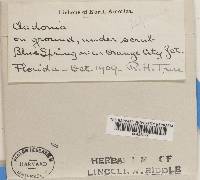 Lichens of North America.
Cladonia
on ground, under scrub
Blue Spring near Orange City, Fla.
Florida - Oct. 1909. R. H. True
HARVARD
HERBARIUM OF
LINCOLN W. RIDDLE